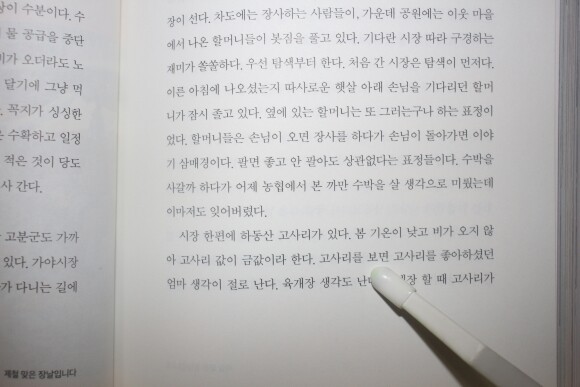 이 수분이다. 수
물 공급을 중단
비가 오더라도 노
달기에 그냥 먹
. 꼭지가 싱싱한
은 수확하고 일정
적은 것이 당도
사 간다.
고분군도 가까
있다. 가야시장
가 다니는 길에
제철 맞은 장날입니다
장이 선다. 차도에는 장사하는 사람들이, 가운데 공원에는 이웃 마을
에서 나온 할머니들이 봇짐을 풀고 있다. 기다란 시장 따라 구경하는
재미가 쏠쏠하다. 우선 탐색부터 한다. 처음 간 시장은 탐색이 먼저다.
이른 아침에 나오셨는지 따사로운 햇살 아래 손님을 기다리던 할머
니가 잠시 졸고 있다. 옆에 있는 할머니는 또 그러는구나 하는 표정이
었다. 할머니들은 손님이 오면 장사를 하다가 손님이 돌아가면 이야
기 삼매경이다. 팔면 좋고 안 팔아도 상관없다는 표정들이다. 수박을
사갈까 하다가 어제 농협에서 본 까만 수박을 살 생각으로 미뤘는데
이마저도 잊어버렸다.
시장 한편에 하동산 고사리가 있다. 봄 기온이 낮고 비가 오지 않
아 고사리 값이 금값이라 한다. 고사리를 보면 고사리를 좋아하셨던
엄마 생각이 절로 난다. 육개장 생각도 할 때 고사리가